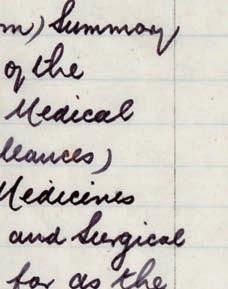 m) Summary
of the
Medical
lleances)
Medicines
and Surgical
far as the